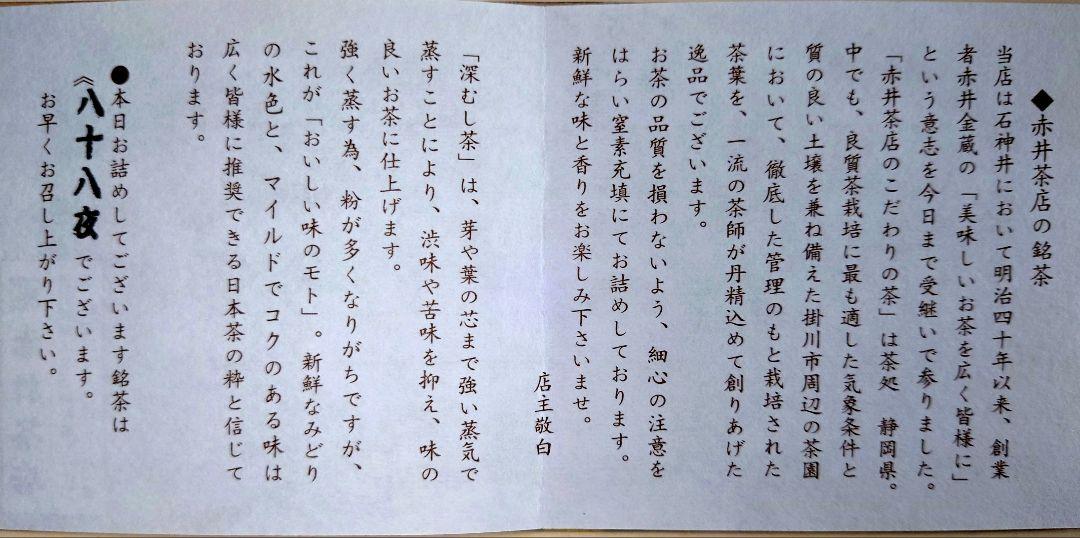 ◆赤井茶店の銘茶
当店は石神井において明治四十年以来、創業
者赤井金蔵の「美味しいお茶を広く皆様に」
という意志を今日まで受継いで参りました。
「赤井茶店のこだわりの茶」は茶処　静岡県。
中でも、良質茶栽培に最も適した気象条件と
質の良い土壌を兼ね備えた掛川市周辺の茶園
において、徹底した管理のもと栽培された
茶葉を、一流の茶師が丹精込めて創りあげた
逸品でございます。
お茶の品質を損わないよう、細心の注意を
はらい窒素充填にてお詰めしております。
新鮮な味と香りをお楽しみ下さいませ。
店主敬白
「深むし茶」は、芽や葉の芯まで強い蒸気で
蒸すことにより、渋味や苦味を抑え、味の
良いお茶に仕上げます。
強く蒸す為、粉が多くなりがちですが、
これが「おいしい味のモト」。新鮮なみどり
の水色と、マイルドでコクのある味は
広く皆様に推奨できる日本茶の粋と信じて
おります。
●本日お詰めしてございます銘茶は
《八十八夜でございます。
お早くお召し上がり下さい。